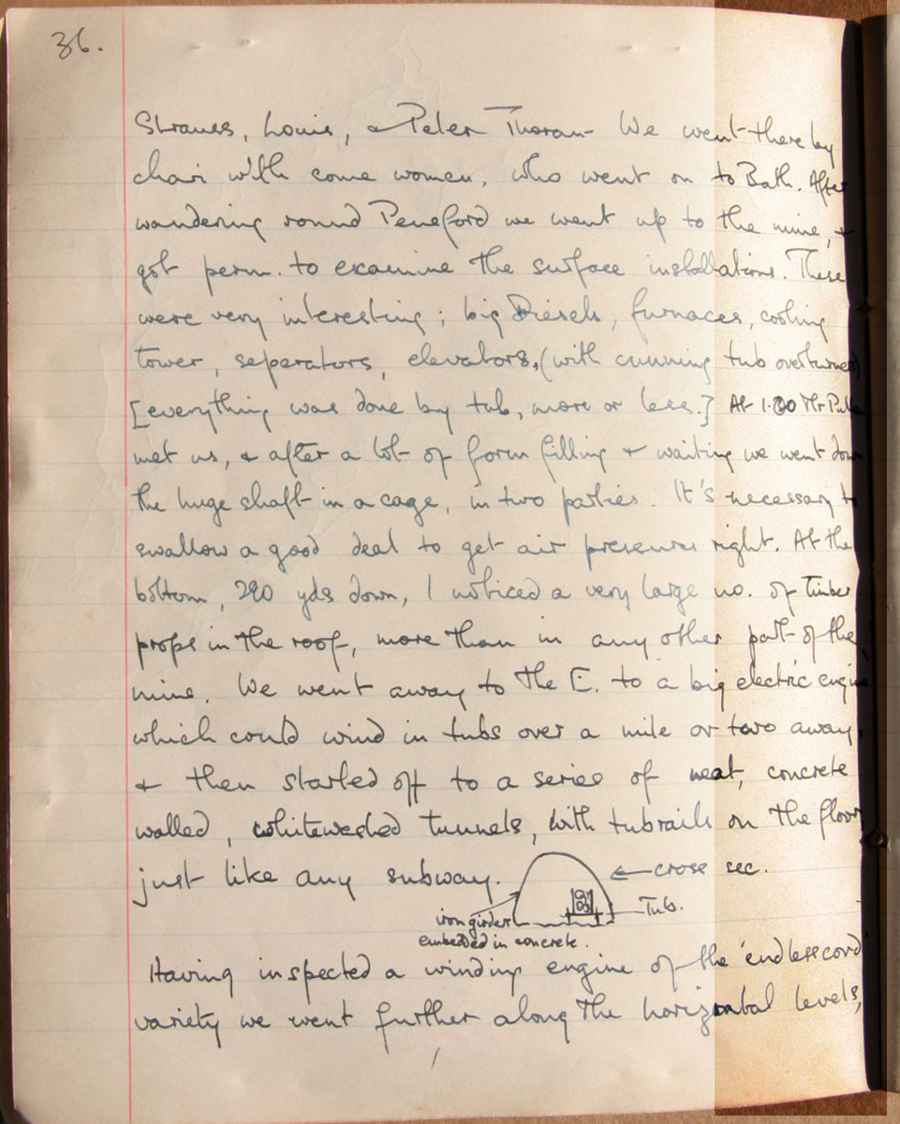 36.
Strauss, Louis, & Peter Thoran- We went there by
chari with come women, who went on to Bath. After
wandering round Peneford we went up to the mine, &
got perm. to examine the surface installations. These
were very interesting; big Diesels, furnaces, cooling
tower, seperators, elevators, (with cunning tub overturner)
[everything was done by tub, more or less.] At 1.30 Mr
met us, & after a lot of form filling & waiting we went down
the huge shaft in a cage, in two parties. It's necessary to
swallow a good deal to get air pressures right. At the
bottom, 290 yds down, I noticed a very large no. of timber
props in the roof, more than in any other part of the
mine. We went away to the E. to a big electric engine
which could wind in tubs over a mile or two away,
& then started off to a series of neat, concrete
walled, whitewashed tunnels, with tubrails on the floor
just like any subway.
← cross sec.
Tub.
iron girder
embedded in concrete.
Having inspected a winding engine of the 'endless cord'
variety we went further along the horizontal levels,